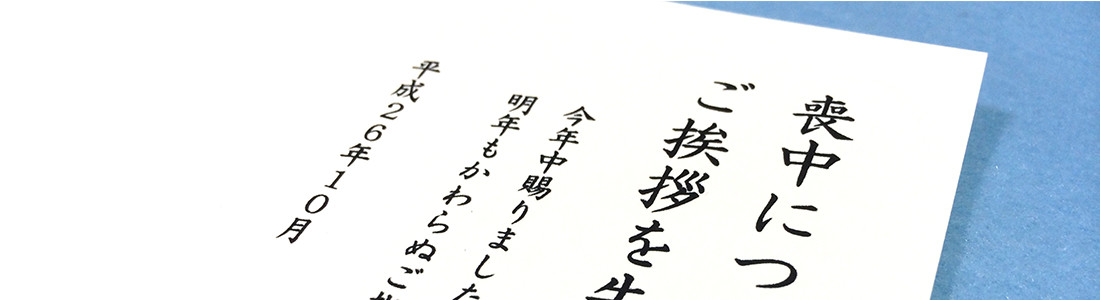 喪中につ
ご挨拶を失
今年中賜りました
明年もかわらぬご
平成26年10月